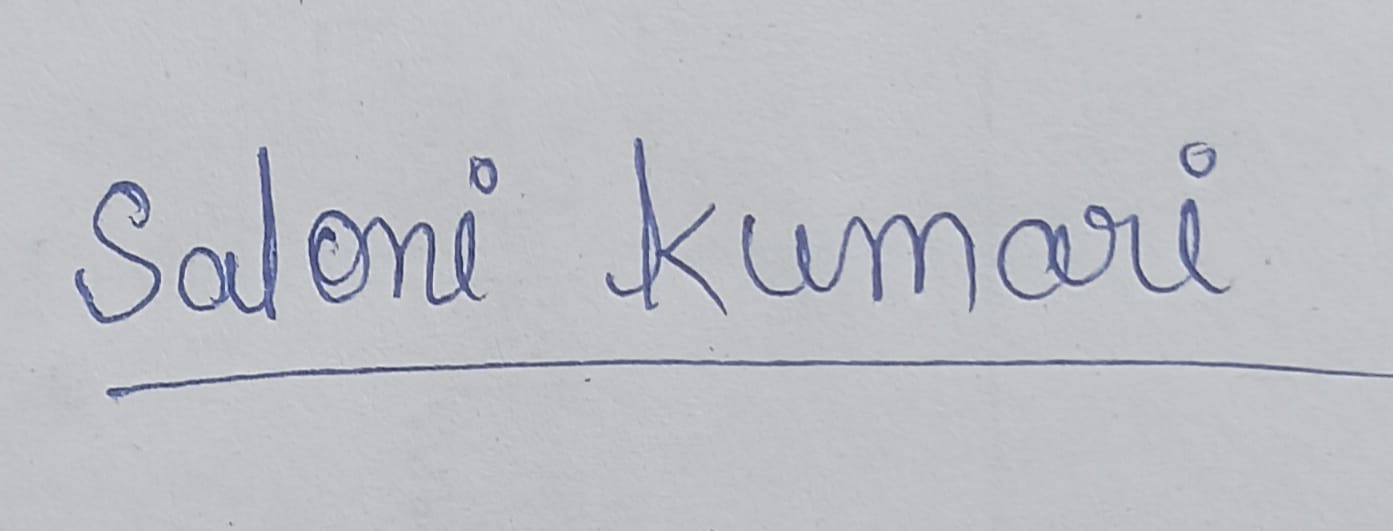 Saloni kumari